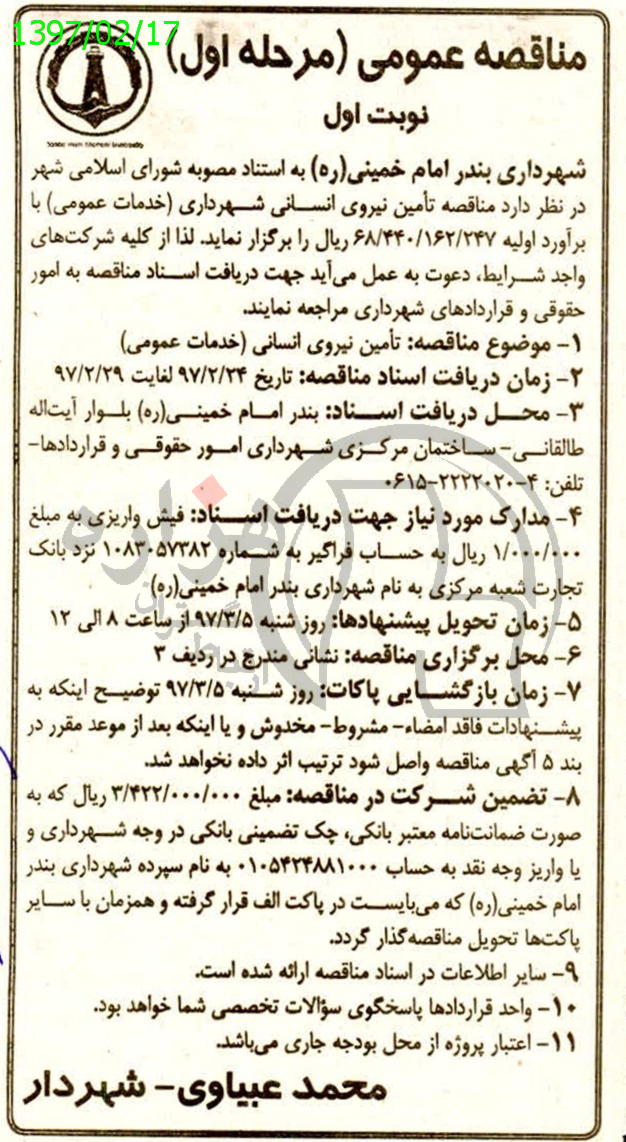 1397/02/17
مناقصه عمومی (مرحله اول)
نوبت اول
شهرداری بندر امام خمینی(ره) به استناد مصوبه شورای اسلامی شهر
در نظر دارد مناقصه تأمین نیروی انسانی شهرداری (خدمات عمومی) با
برآورد اولیه ۶۸/۴۴۰/۱۶۲/۲۴۷ ریال را برگزار نماید. لذا از کلیه شرکت‌های
واجد شرایط، دعوت به عمل می‌آید جهت دریافت اسناد مناقصه به امور
حقوقی و قراردادهای شهرداری مراجعه نمایند.
۱- موضوع مناقصه: تأمین نیروی انسانی (خدمات عمومی)
۲- زمان دریافت اسناد مناقصه: تاریخ ۹۷/۲/۲۴ لغایت ۹۷/۲/۲۹
۳- محل دریافت اسناد: بندر امام خمینی(ره) بلوار آیت‌اله
طالقانی- ساختمان مرکزی شهرداری امور حقوقی و قراردادها-
تلفن: ۴-۲۲۲۲۰۲۰-۰۶۱۵
۴- مدارک مورد نیاز جهت دریافت اسناد: فیش واریزی به مبلغ
۱/۰۰۰/۰۰۰ ریال به حساب فراگیر به شماره ۱۰۸۳۰۵۷۳۸۲ نزد بانک
تجارت شعبه مرکزی به نام شهرداری بندر امام خمینی(ره)
۵- زمان تحویل پیشنهادها: روز شنبه ۹۷/۳/۵ از ساعت ۸ الی ۱۲
۶- محل برگزاری مناقصه: نشانی مندرج در ردیف ۳
۷- زمان بازگشایی پاکات: روز شنبه ۹۷/۳/۵ توضیح اینکه به
پیشنهادات فاقد امضاء- مشروط- مخدوش و یا اینکه بعد از موعد مقرر در
بند ۵ آگهی مناقصه واصل شود ترتیب اثر داده نخواهد شد.
۸- تضمین شرکت در مناقصه: مبلغ ۳/۴۲۲/۰۰۰/۰۰۰ ریال که به
صورت ضمانت‌نامه معتبر بانکی، چک تضمینی بانکی در وجه شهرداری و
یا واریز وجه نقد به حساب ۰۱۰۵۴۲۴۸۸۱۰۰۰ به نام سپرده شهرداری بندر
امام خمینی(ره) که می‌بایست در پاکت الف قرار گرفته و همزمان با سایر
پاکت‌ها تحویل مناقصه‌گذار گردد.
۹- سایر اطلاعات در اسناد مناقصه ارائه شده است.
۱۰- واحد قراردادها پاسخگوی سؤالات تخصصی شما خواهد بود.
۱۱- اعتبار پروژه از محل بودجه جاری می‌باشد.
محمد عبیاوی- شهردار
هزاره